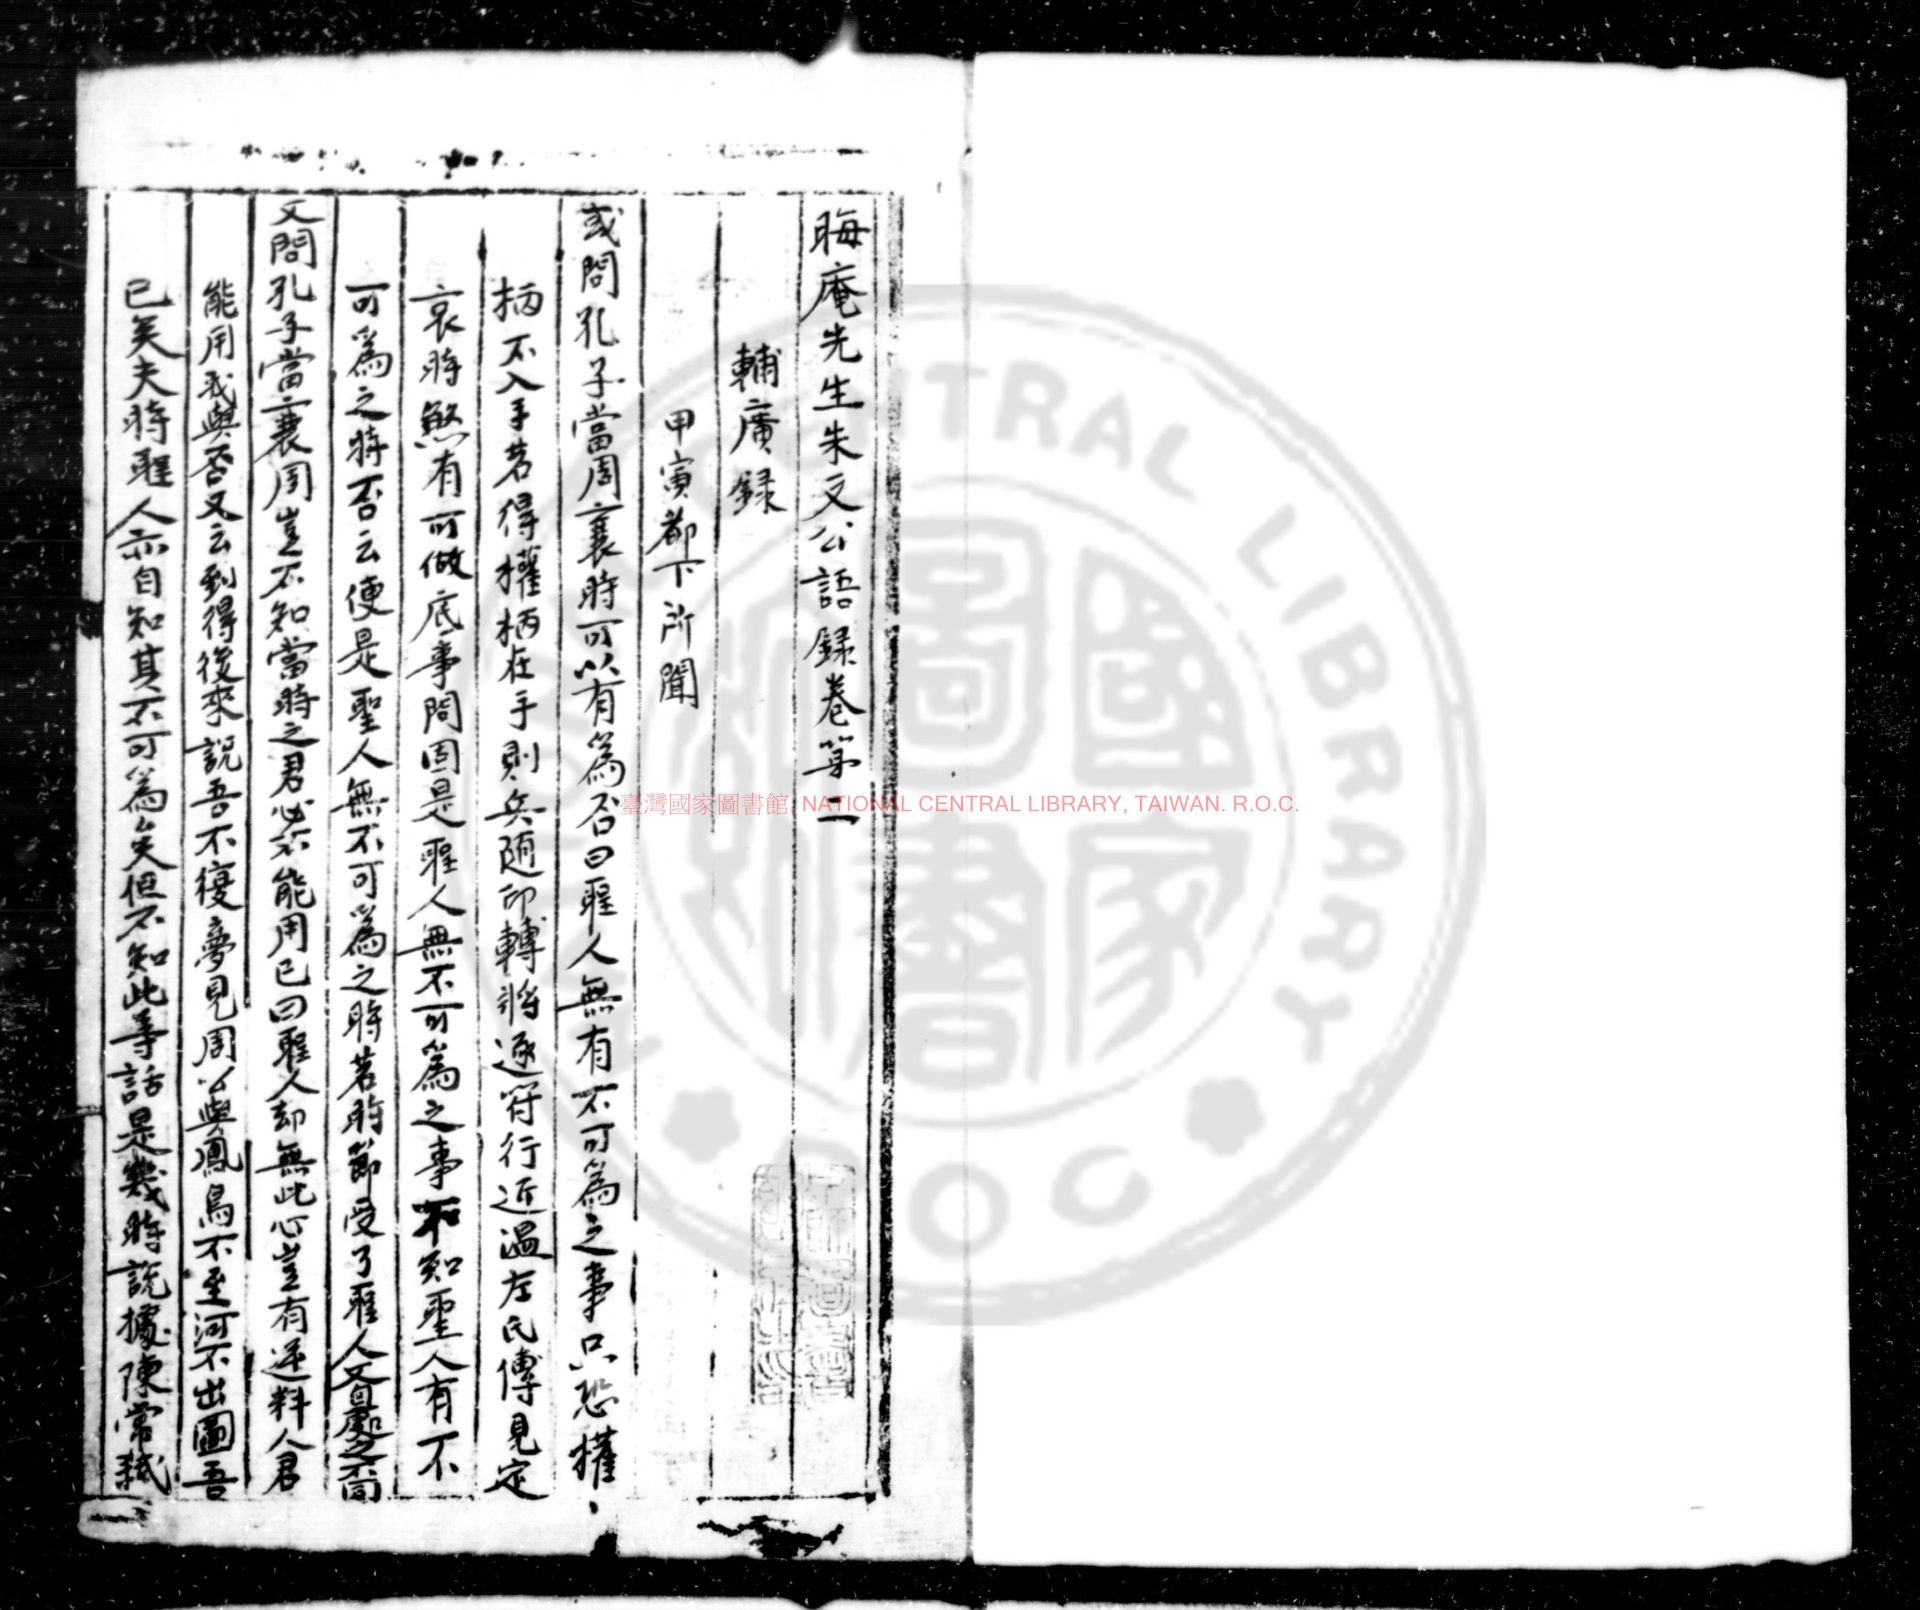 晦庵先生朱文公語録卷第二
輔廣録
甲寅都下所聞
或問孔子當周衰時可以有為否曰聖人無有不可為之事只恐權
柄不入手若得權柄在手則兵随印轉將逐符行近温左氏傳見定
哀時煞有可做底事問固是聖人無不可為之事不知聖人有不
可為之時否云便是聖人無不可為之時若時節変了聖人又自處之不同
又問孔子當衰周豈不知當時之君必不能用已曰聖人却無此心豈有逆料人君
能用我與否又云到得後來說吾不復夢見周公與鳳鳥不至河不出圖吾
已矣夫時聖人亦自知其不可為矣但不知此等話是幾時說據陳常弑
臺灣國家圖書館, NATIONAL CENTRAL LIBRARY, TAIWAN. R.O.C.